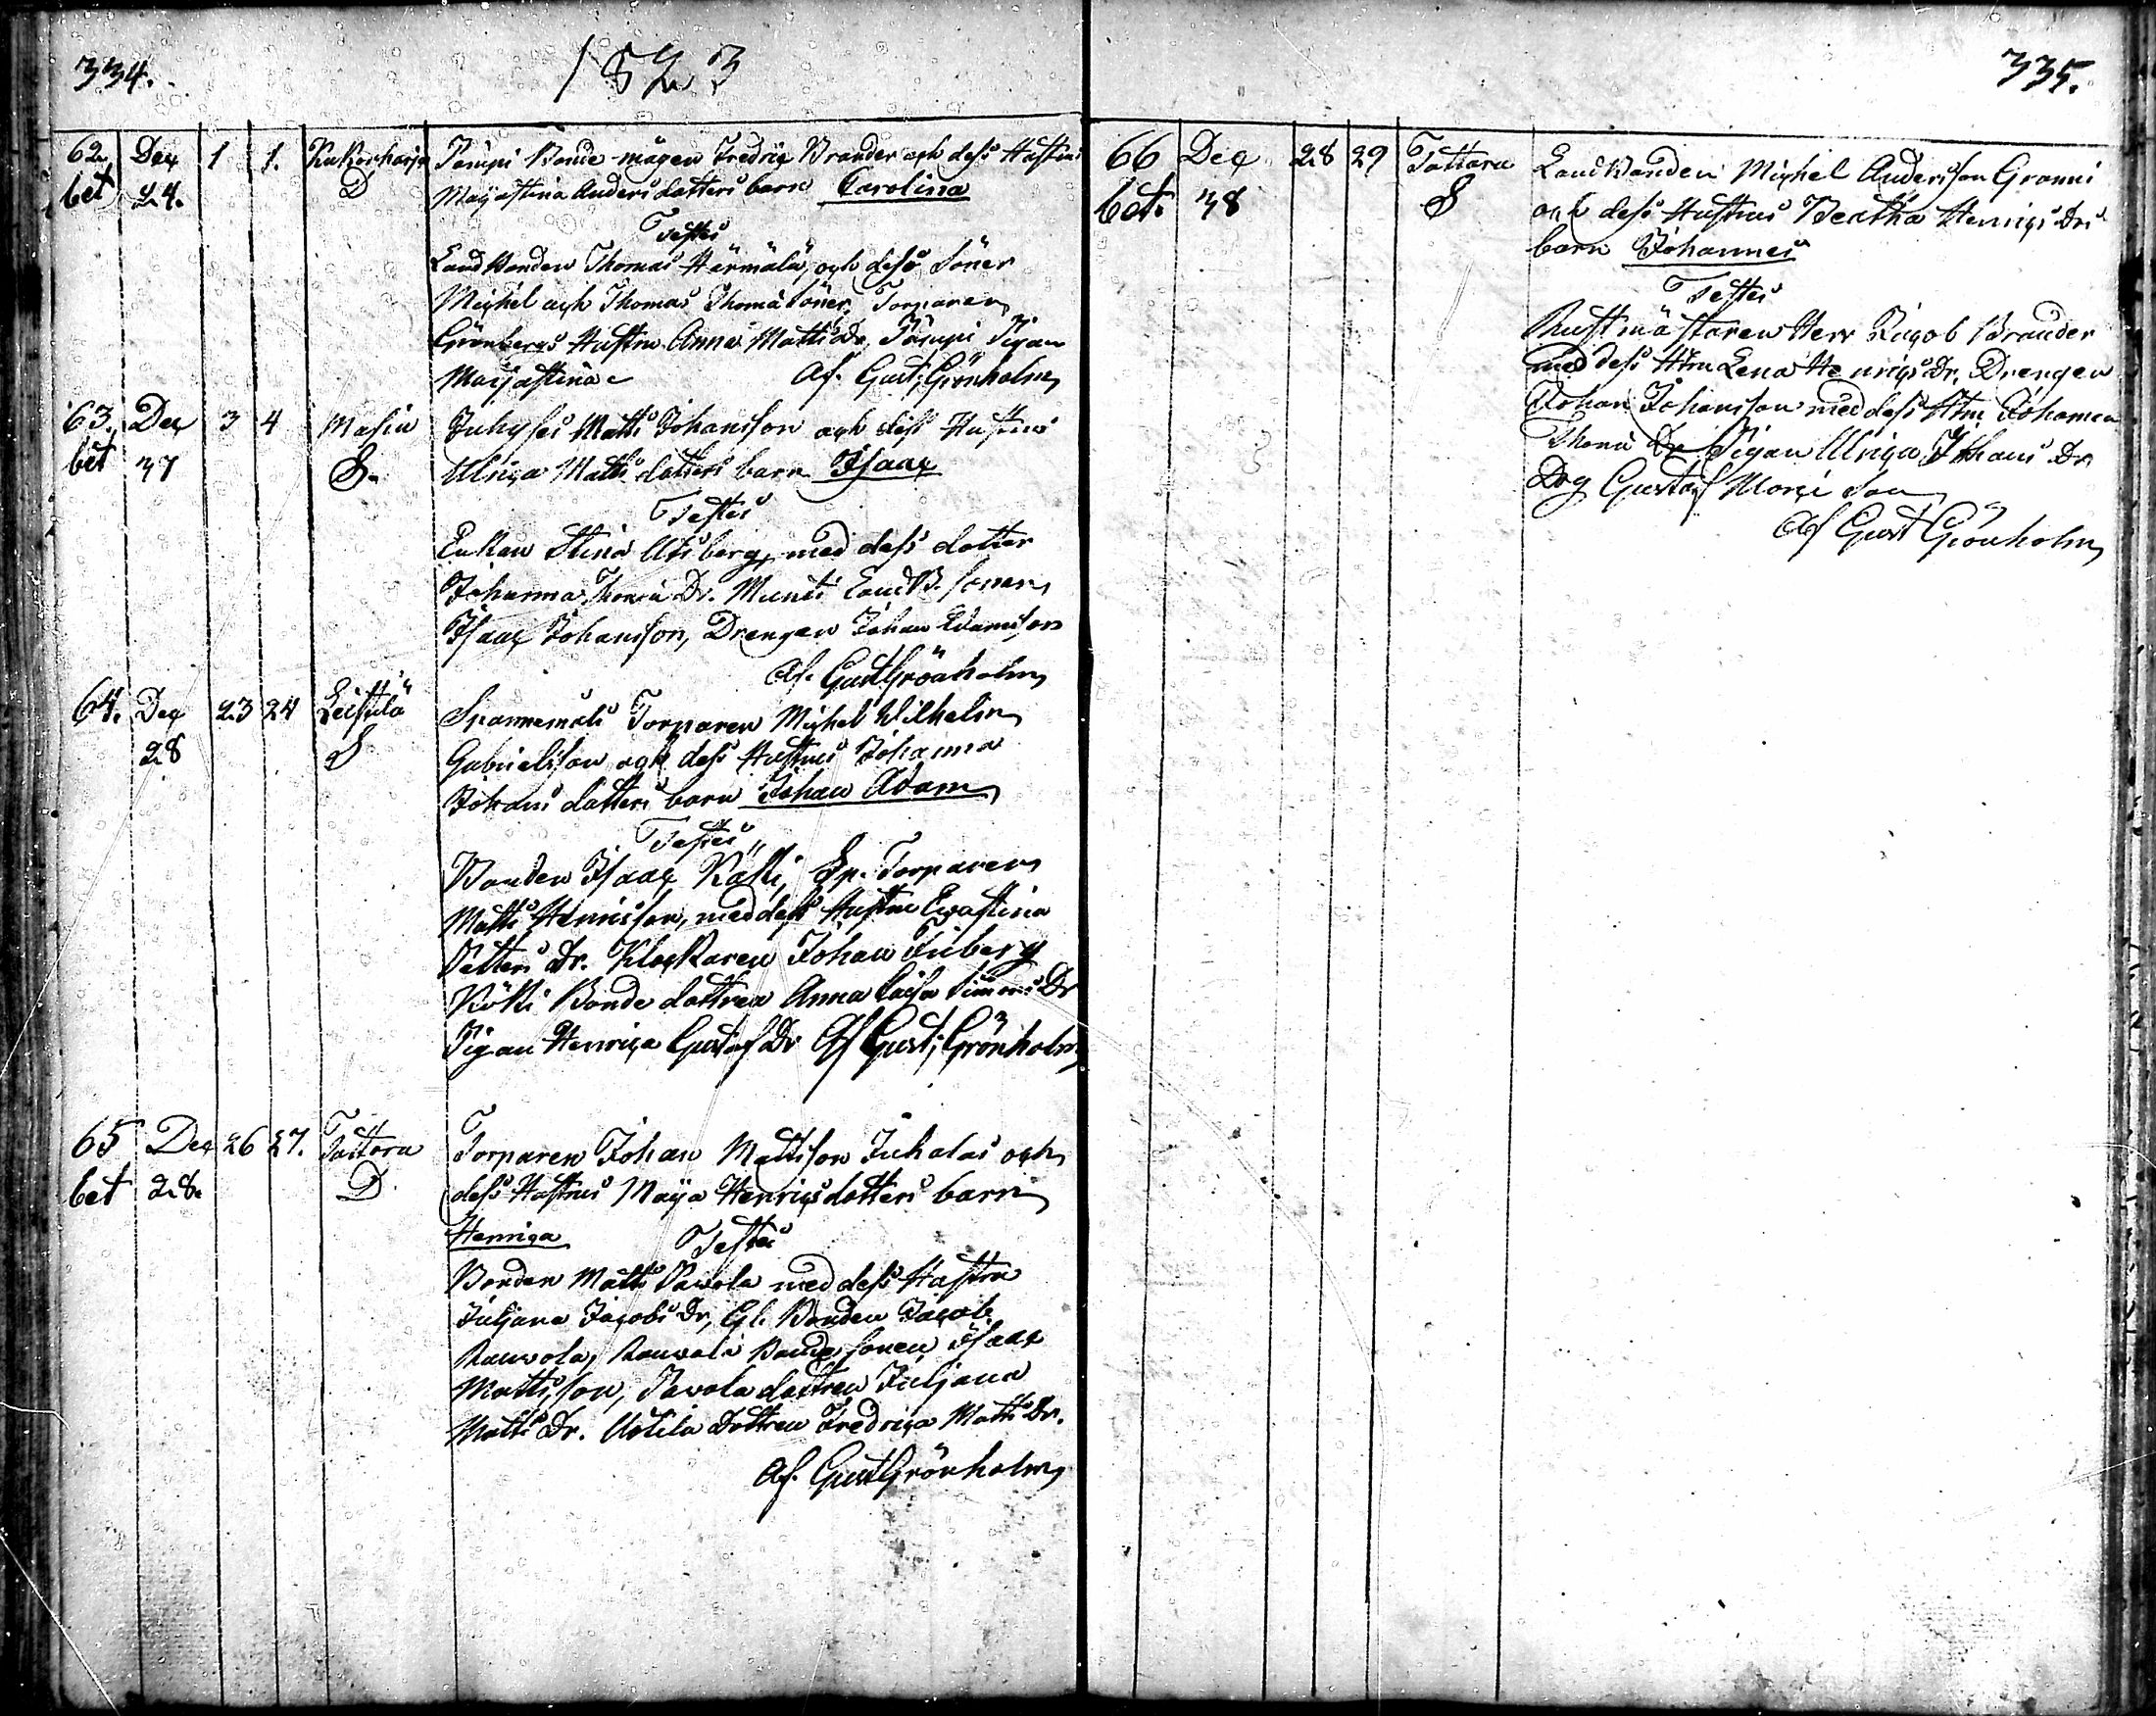 334.
1823
62 Dec 1 1. Kukonharja Pámpi Bonde-mågen Fredric Brander och dess Hustrus
bet 24. D Majastina Anders dotters barn Carolina
Testes
Landbonden Thomas Härmälä, och dess Söner
Michel och Thomas Thomæ Söner, Torparen
Grönbergs Hustru Anna Matts Dr, Pámpi Pigan
Majastina Af. Gust; Grönholm
63. Dec 3 4 Masia Inhyses Matts Johansson och dess Hustrus
bet 37 S. Ulrica Matts dotters barn Isaac
Testes
Enkan Stina Utsberg, med dess dotter
Johanna Thomæ Dr. Munti LandB. sonen
Isaac Johansson, Drengen Johan Adamsson
Af. Gust Grönholm
64. Dec 23 24 Leistilä Spannemåls Torparen Michel Wilhelm
28 S Gabrielsson och dess Hustrus Johanna
Johans dotters barn Johan Adam
Testes
Bonden Isaac Kåkki, Sp. Torparen
Matts Henricsson, med dess Hustru Ewastina
Petters Dr. Klockaren Johan Friberg
Kökki Bonde dottren Anna Caisa Simons Dr
Pigan Henrica Gustaf Dr Af Gust; Grönholm
65 Dec 26 27. Tattara Torparen Johan Mattsson Juhalas och
bet 28. D dess Hustrus Maja Henrics dotters barn
Henrica Testes
Bonden Matts Pawola med dess Hustru
Juljana Jacobs Dr, Gl. Bonden Jacob
Rauwola, Rauwola Bondesonen Isaac
Mattsson, Pawola dottren Juljana
Matts Dr. Uotila Dottren Fredrica Matts Dr.
Af. Gust Grönholm
335.
66 Dec 28 29 Tattara Landbonden Michel Andersson Granni
bet. 38 S och dess Hustrus Beatha Henrics Drs
barn Johannes
Testes
Rustmästaren Herr Jacob Brander
med dess Htru Lena Henrics Dr, Drengen
Johan Johansson med dess Htru Johanna
Thomæ Dr Pigan Ulrica Johans Dr
Drg Gustaf Morci Son
Af Gust Grönholm